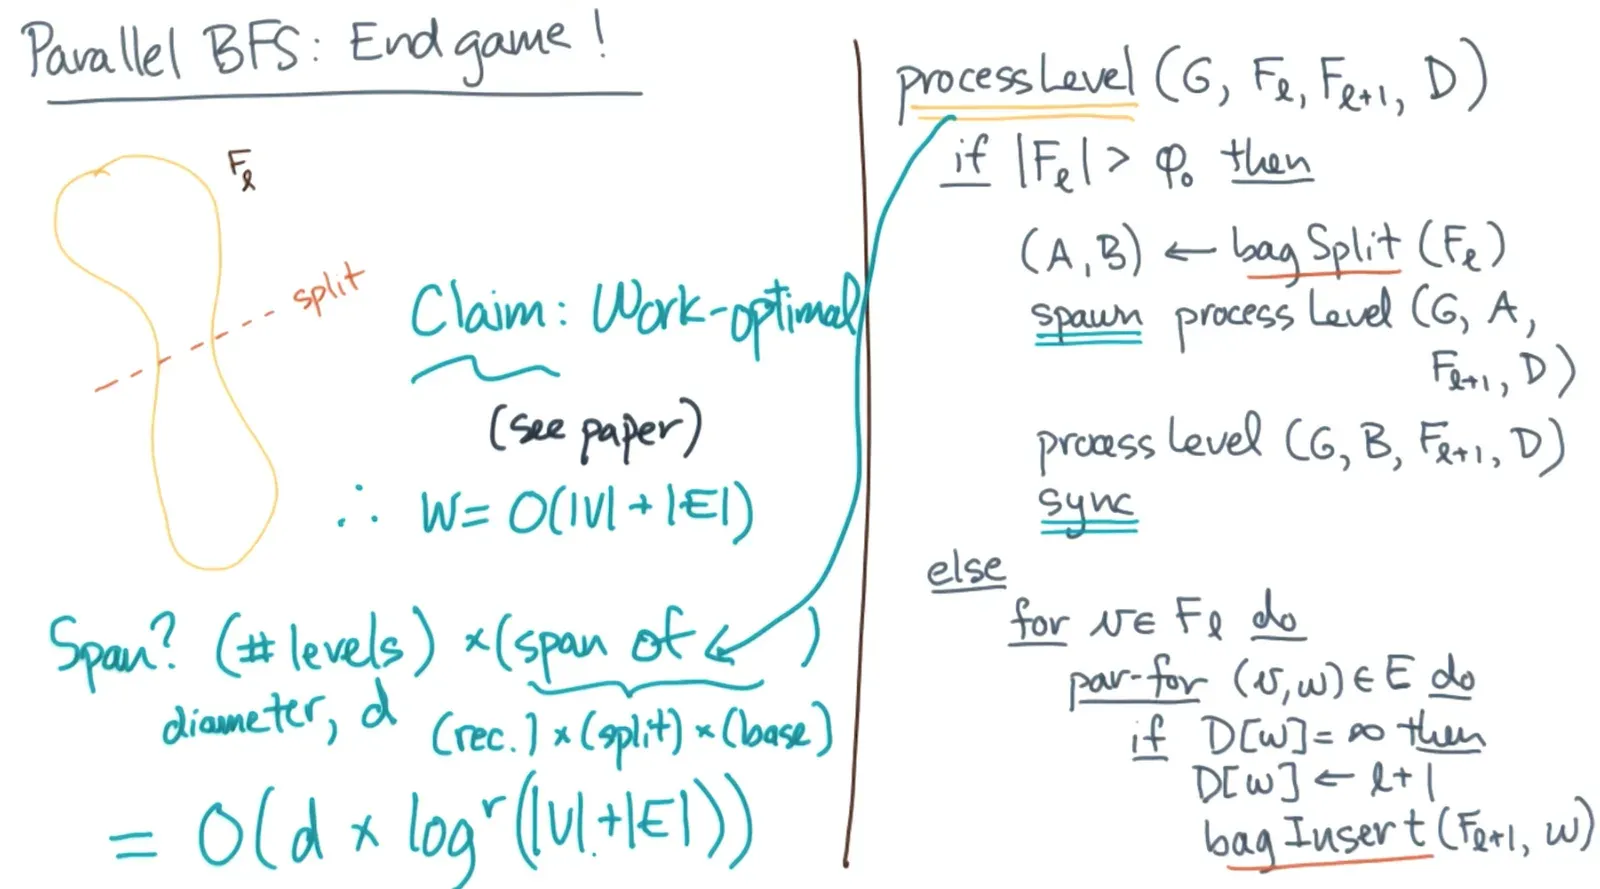 Parallel BFS: End game!
Fℓ
split
Claim: Work-optimal
(see paper)
∴ W = O(|V| + |E|)
Span? (# levels) × (span of )
diameter, d
(rec.) × (split) × (base)
= O(d × log^r(|V| + |E|))
processLevel (G, Fℓ, Fℓ+1, D)
if |Fℓ| > φ₀ then
(A, B) ← bagSplit (Fℓ)
spawn process Level (G, A,
Fℓ+1, D)
process Level (G, B, Fℓ+1, D)
sync
else
for v ∈ Fℓ do
par-for (v, w) ∈ E do
if D[w] = ∞ then
D[w] ← ℓ + 1
bagInsert (Fℓ+1, w)